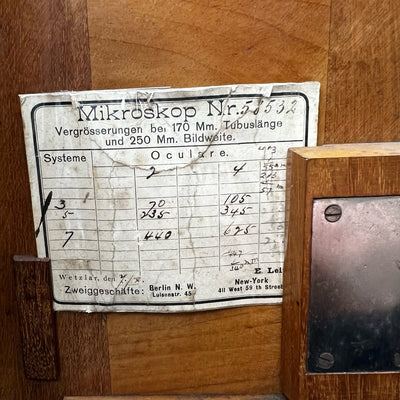 Mikroskop Nr. 58532
Vergrösserungen bei 170 Mm. Tubuslänge
und 250 Mm. Bildweite.
Systeme Oculare.
2 4
3 70 105
5 235 345
7 440 625
Wetzlar, den
E. Lei
Zweiggeschäfte: Berlin N. W. New-York
Luisenstr. 45 411 West 59 th Street